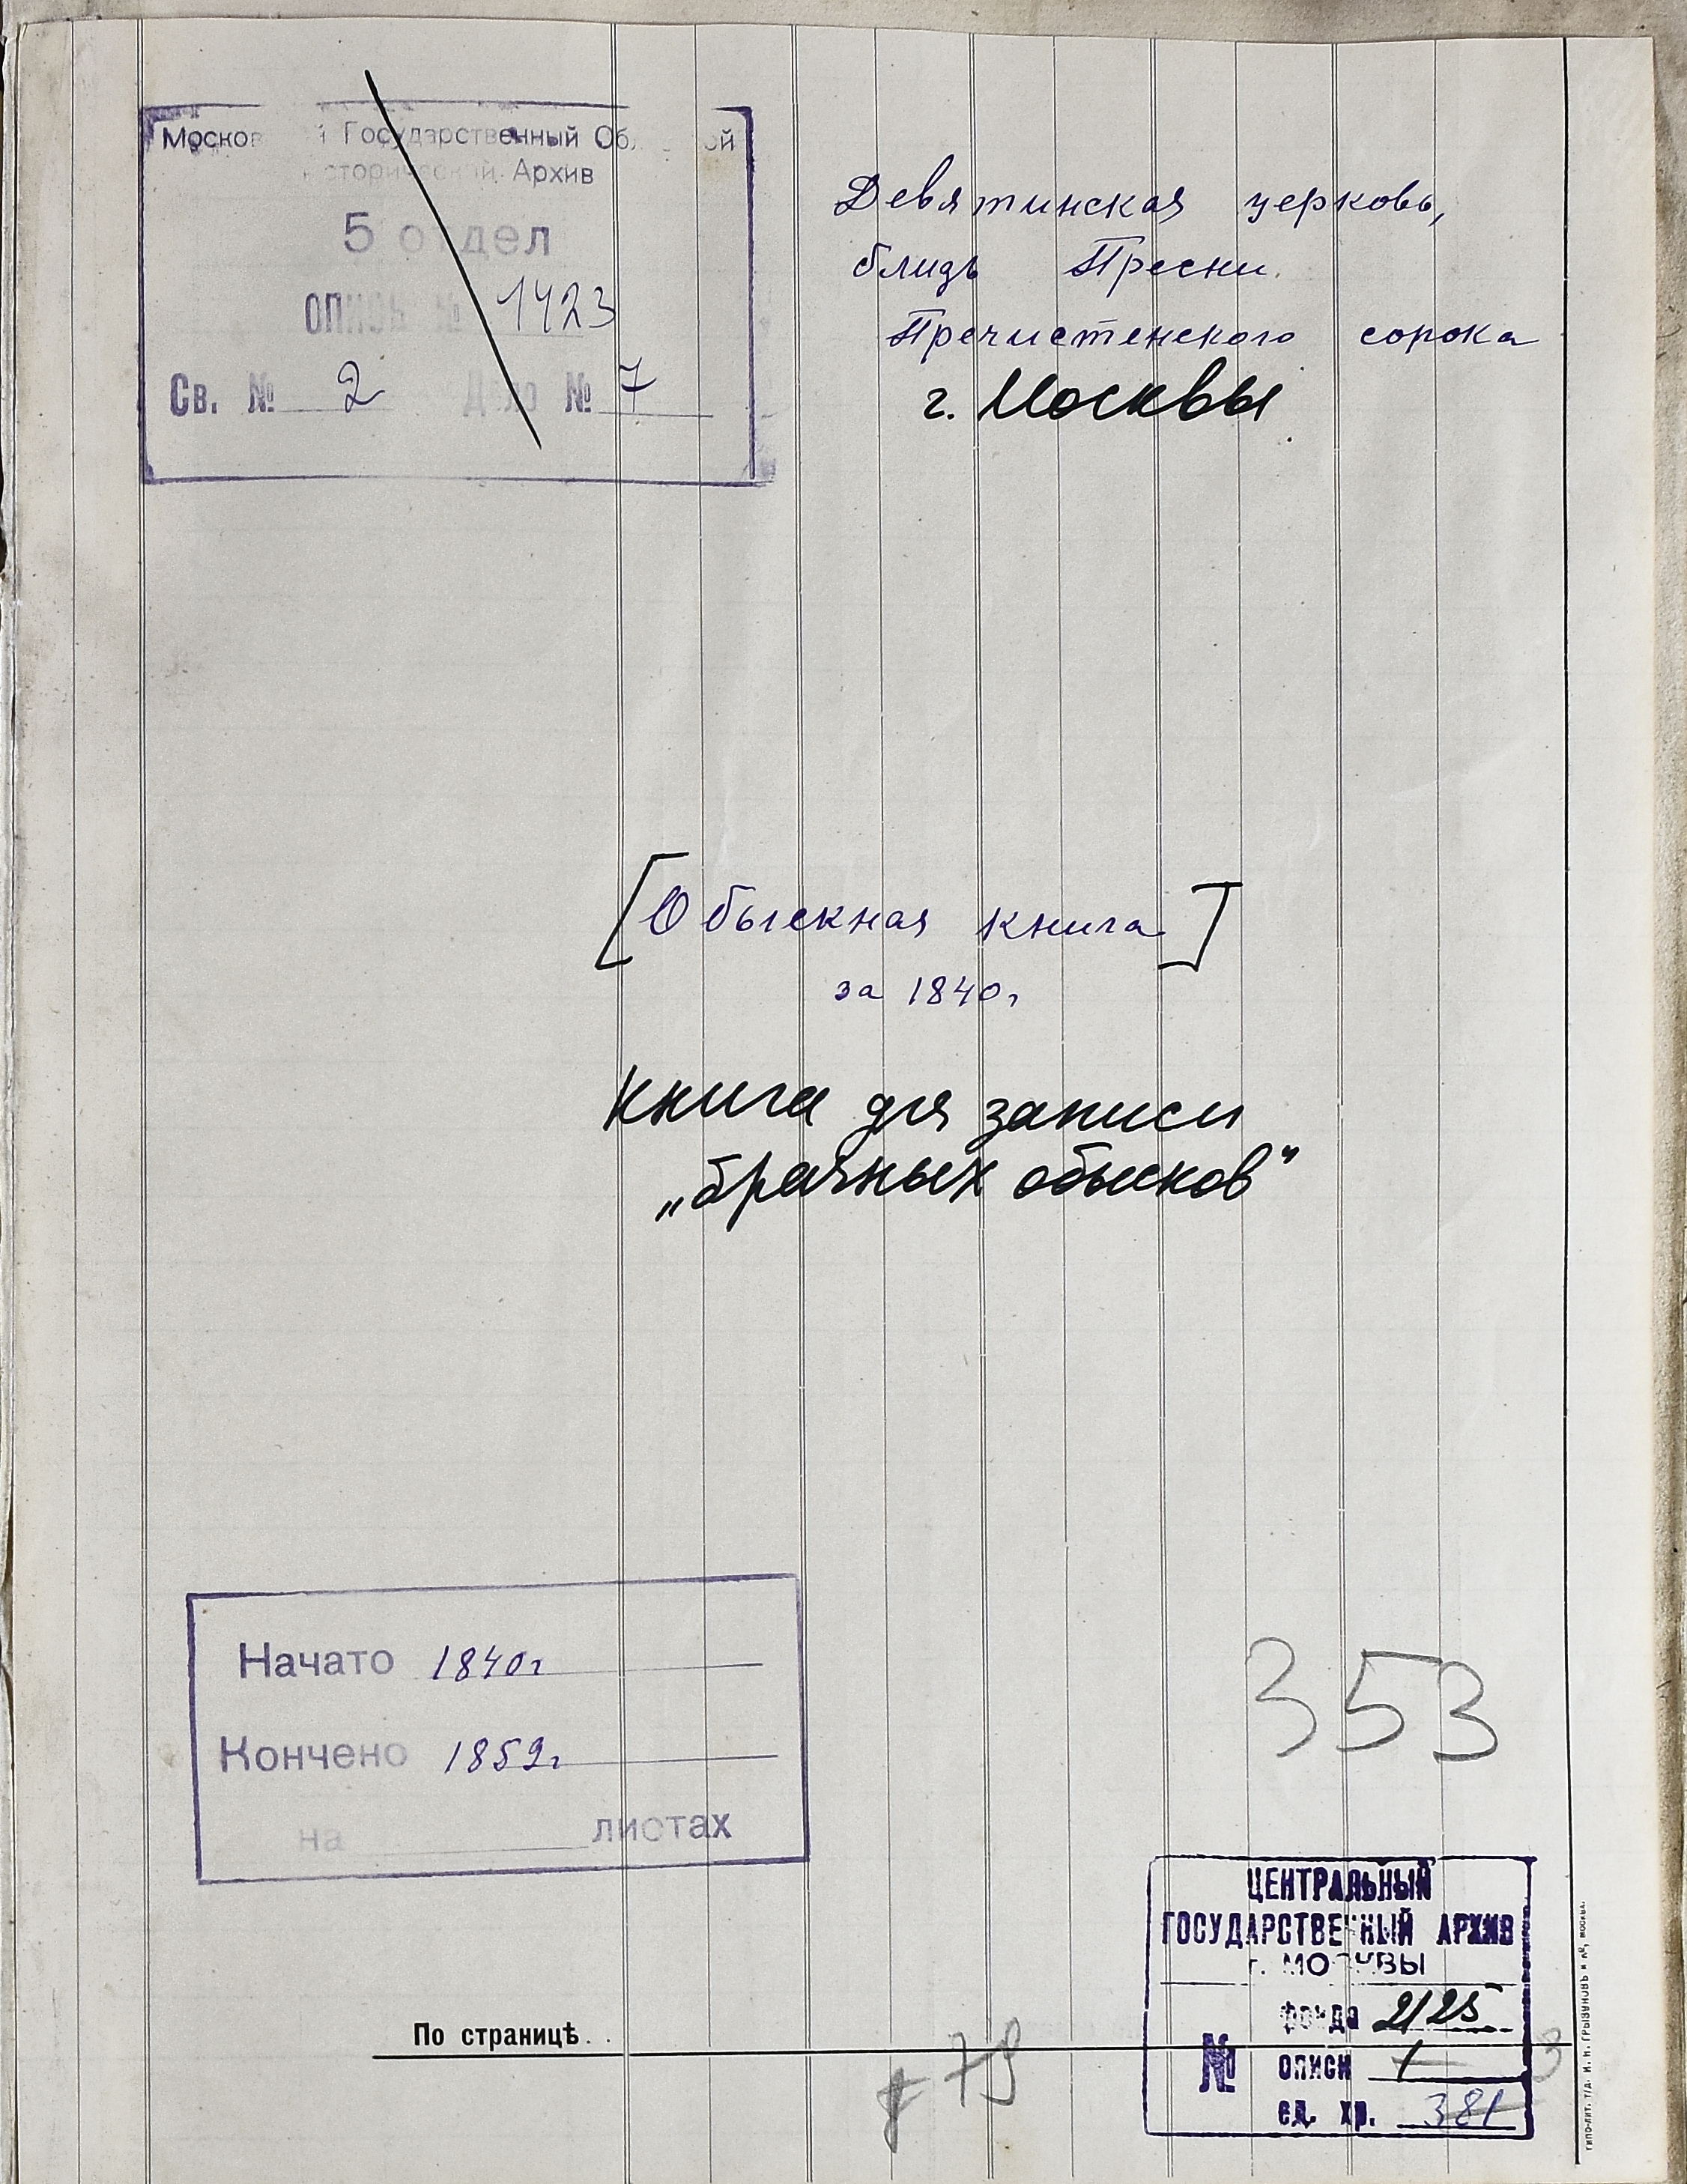 Московский Государственный Областной
Исторический Архив
5 отдел
опись № 1423
Св. № 2 Дело № 7
Девятинская церковь,
близь Пресни
Пречистенского сорока
г. Москвы
[Обыскная книга]
за 1840г
Книга для записи
„брачных обысков"
Начато 1840г
Кончено 1859г
на листах
353
ЦЕНТРАЛЬНЫЙ
ГОСУДАРСТВЕННЫЙ АРХИВ
г. МОСКВЫ
фонда 2125
№ описи 1 3
ед. хр. 381
По страницѣ
79
ТИПО-ЛИТ. Т/Д. И. Н. ГРЫЗУНОВЪ и Ко, МОСКВА.